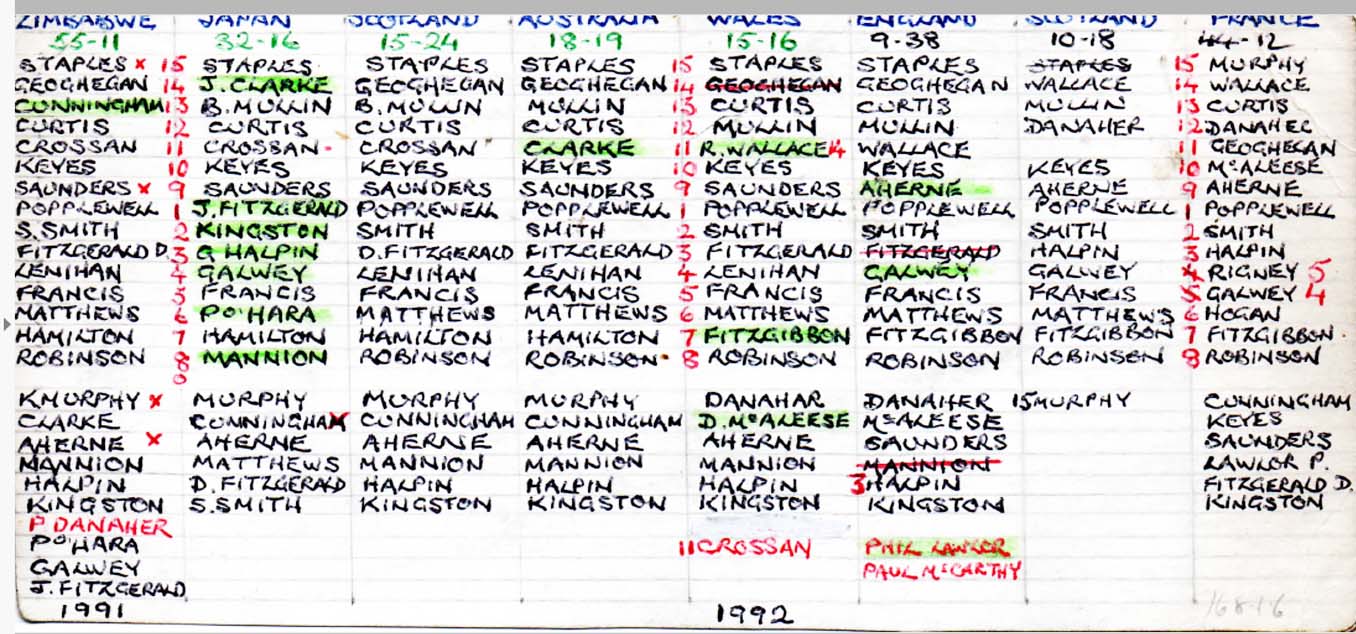 ZIMBABWE JAPAN SCOTLAND AUSTRALIA WALES ENGLAND SCOTLAND FRANCE
55-11 32-16 15-24 18-19 15-16 9-38 10-18 44-12
STAPLES x 15 STAPLES STAPLES STAPLES 15 STAPLES STAPLES STAPLES 15 MURPHY
GEOGHEGAN 14 J.CLARKE GEOGHEGAN GEOGHEGAN 14 GEOGHEGAN GEOGHEGAN WALLACE 14 WALLACE
CUNNINGHAM 13 B.MULLIN B.MULLIN MULLIN 13 CURTIS CURTIS MULLIN 13 CURTIS
CURTIS 12 CURTIS CURTIS CURTIS 12 MULLIN MULLIN DANAHER 12 DANAHER
CROSSAN 11 CROSSAN CROSSAN CLARKE 11 R.WALLACE 14 WALLACE 11 GEOGHEGAN
KEYES 10 KEYES KEYES KEYES 10 KEYES KEYES KEYES 10 McALEESE
SAUNDERS x 9 SAUNDERS SAUNDERS SAUNDERS 9 SAUNDERS AHERNE AHERNE 9 AHERNE
POPPLEWELL 1 J.FITZGERALD POPPLEWELL POPPLEWELL 1 POPPLEWELL POPPLEWELL POPPLEWELL 1 POPPLEWELL
S.SMITH 2 KINGSTON SMITH SMITH 2 SMITH SMITH SMITH 2 SMITH
FITZGERALD D. 3 G HALPIN D.FITZGERALD FITZGERALD 3 FITZGERALD FITZGERALD HALPIN 3 HALPIN
LENIHAN 4 GALWEY LENIHAN LENIHAN 4 LENIHAN GALWEY GALWEY 4 RIGNEY 5
FRANCIS 5 FRANCIS FRANCIS FRANCIS 5 FRANCIS FRANCIS FRANCIS 5 GALWEY 4
MATTHEWS 6 P O'HARA MATTHEWS MATTHEWS 6 MATTHEWS MATTHEWS MATTHEWS 6 HOGAN
HAMILTON 7 HAMILTON HAMILTON HAMILTON 7 FITZGIBBON FITZGIBBON FITZGIBBON 7 FITZGIBBON
ROBINSON 8 MANNION ROBINSON ROBINSON 8 ROBINSON ROBINSON ROBINSON 8 ROBINSON
8
K MURPHY x MURPHY MURPHY MURPHY DANAHAR DANAHER 15 MURPHY CUNNINGHAM
CLARKE CUNNINGHAM CUNNINGHAM CUNNINGHAM D.McALEESE McALEESE KEYES
AHERNE x AHERNE AHERNE AHERNE AHERNE SAUNDERS SAUNDERS
MANNION MATTHEWS MANNION MANNION MANNION MANNION LAWLOR P.
HALPIN D.FITZGERALD HALPIN HALPIN HALPIN 3 HALPIN FITZGERALD D.
KINGSTON S.SMITH KINGSTON KINGSTON KINGSTON KINGSTON KINGSTON
P DANAHER
P O'HARA 11 CROSSAN PHIL LAWLOR
GALWEY PAUL McCARTHY
J.FITZGERALD
1991 1992